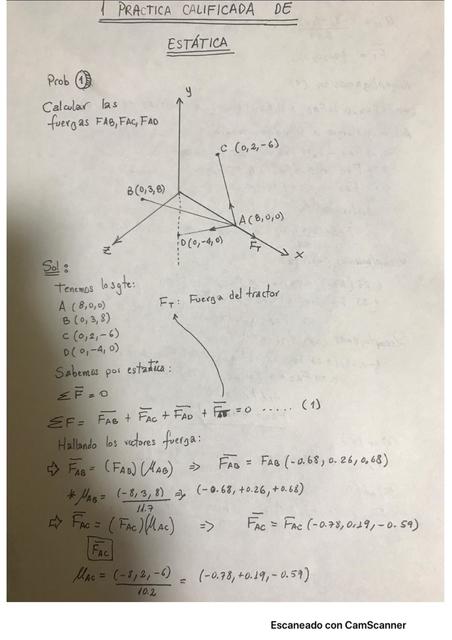 1 PRACTICA CALIFICADA DE
ESTÁTICA
Prob ①
Calcular las
fuerzas FAB, FAC, FAD
y
C (0,2,-6)
B(0,3,8)
A(8,0,0)
D(0,-4,0)
F_T
z
x
Sol:
Tenemos lo sgte:
F_T: Fuerza del tractor
A (8,0,0)
B (0,3,8)
C (0,2,-6)
D(0,-4,0)
Sabemos por estática:
ΣF̅ = 0
ΣF = F̅_AB + F̅_AC + F̅_AD + = 0 ..... (1)
Hallando los vectores fuerza:
⇨ F̅_AB = (F_AB)(μ_AB) => F̅_AB = F_AB (-0.68, 0.26, 0.68)
* μ_AB = (-8,3,8)/11.7 => (-0.68, +0.26, +0.68)
⇨ F̅_AC = (F_AC)(μ_AC) => F̅_AC = F_AC (-0.78, 0.19, -0.59)
F̅_AC
μ_AC = (-8,2,-6)/10.2 = (-0.78, +0.19, -0.59)
Escaneado con CamScanner